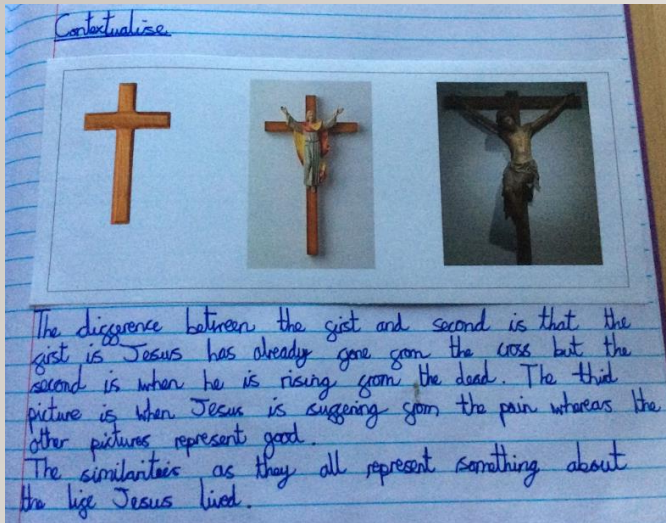 Contextualise
The difference between the first and second is that the
first is Jesus has already gone from the cross but the
second is when he is rising from the dead. The third
picture is when Jesus is suffering from the pain whereas the
other pictures represent good.
The similaritees as they all represent something about
the life Jesus lived.